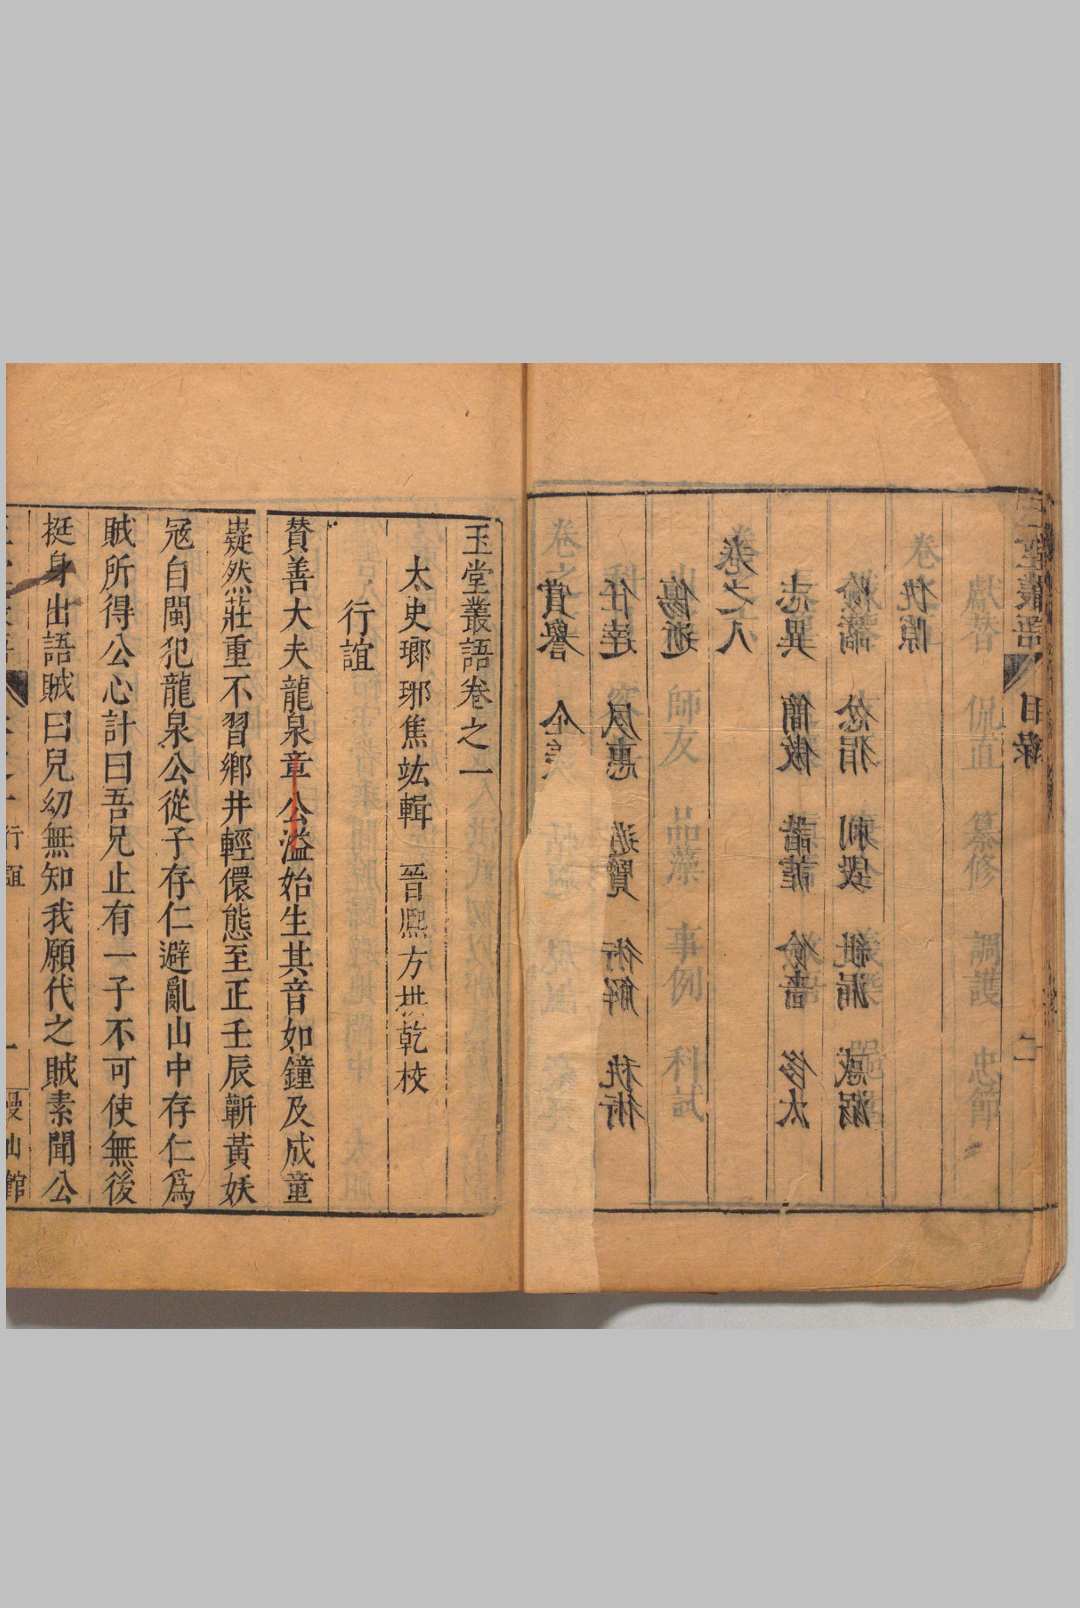 玉堂叢語 目錄
獻替 侃直 纂修 調護 忠節
師友 品藻 事例 科試
賞譽 企羨
任達 夙惠 遊覽 術解
傷逝
卷之八
志異 簡傲 諧謔 儉嗇 侈汰
險譎 忿狷 刺毀 紕漏 惑溺
仇隙
玉堂叢語卷之一
太史瑯琊焦竑輯 晉熙方拱乾校
行誼
贊善大夫龍泉章公溢始生其音如鐘及成童
嶷然莊重不習鄉井輕儇態至正壬辰蘄黃妖
冦自閩犯龍泉公從子存仁避亂山中存仁爲
賊所得公心計曰吾兄止有一子不可使無後
挺身出語賊曰兒幼無知我願代之賊素聞公
行誼 一 曼山館